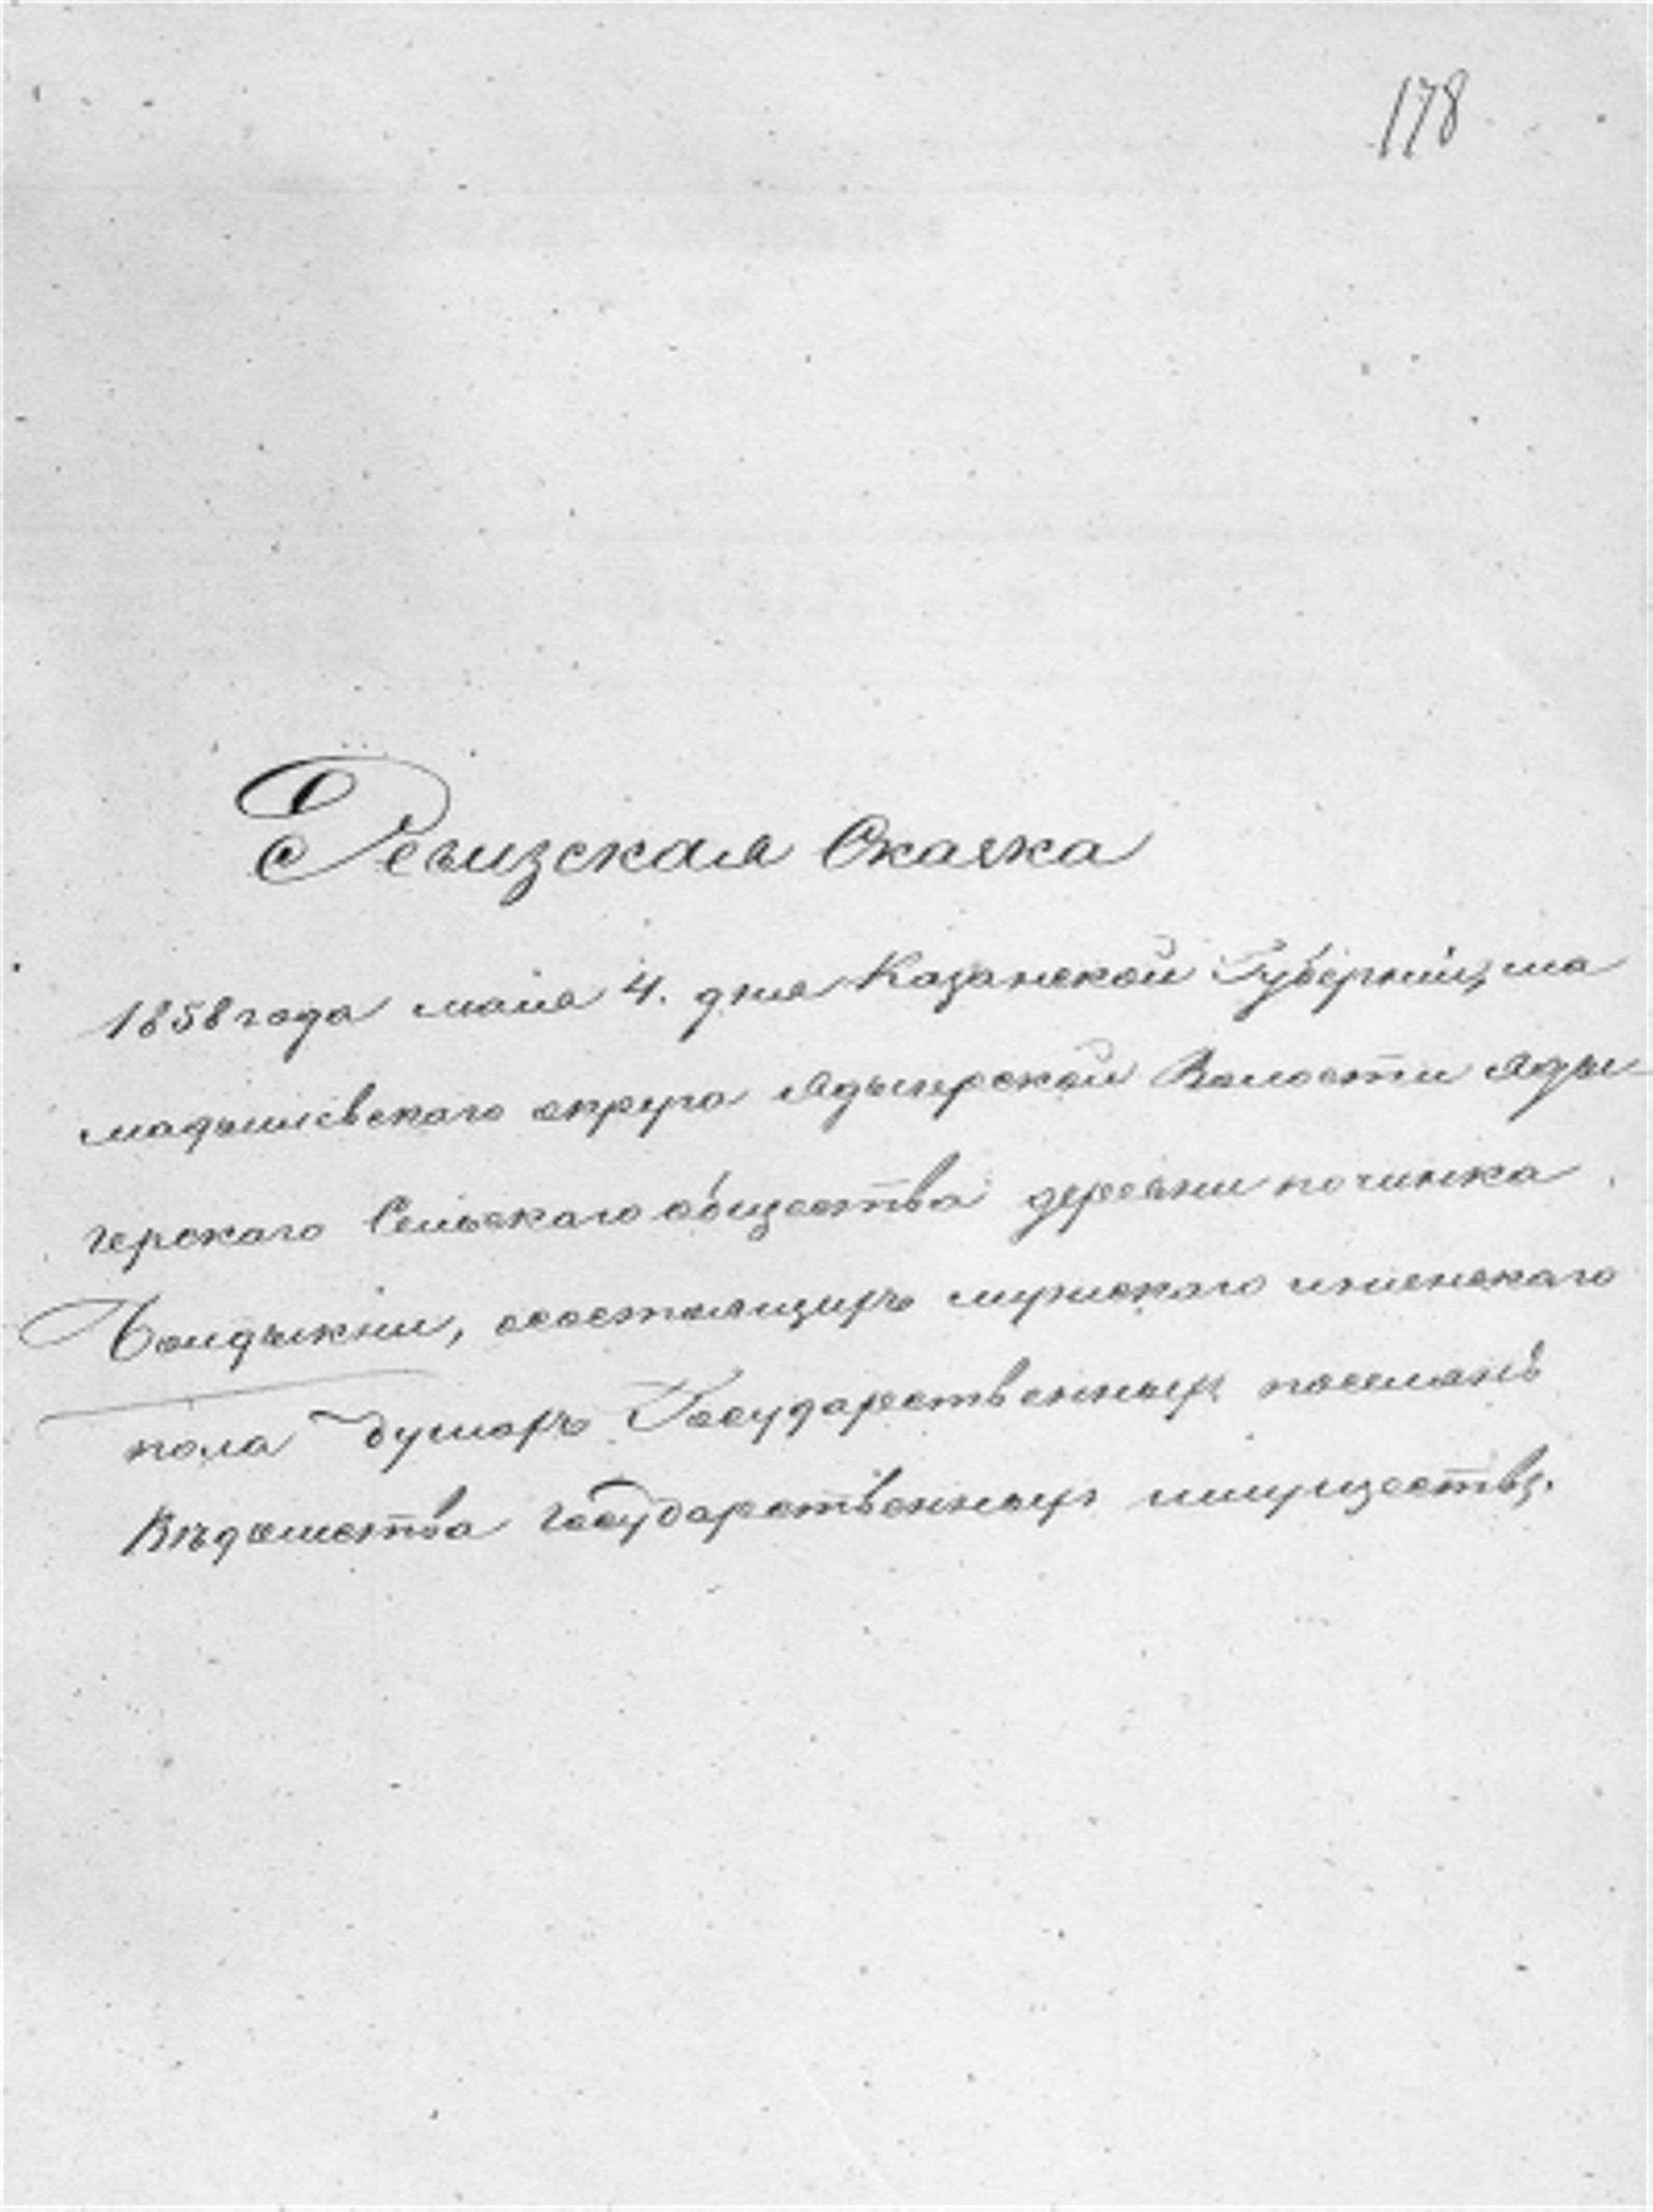 178
Ревизская Сказка
1858 года маия 4. дня Казанской Губернии, ма
мадышевскаго округа Адыгерской Волости Ады
герскаго Сельскаго общества деревни починка
состоящихъ мужскаго и женскаго
пола душахъ Государственныхъ поселянъ
Вѣдомства государственныхъ имуществъ.